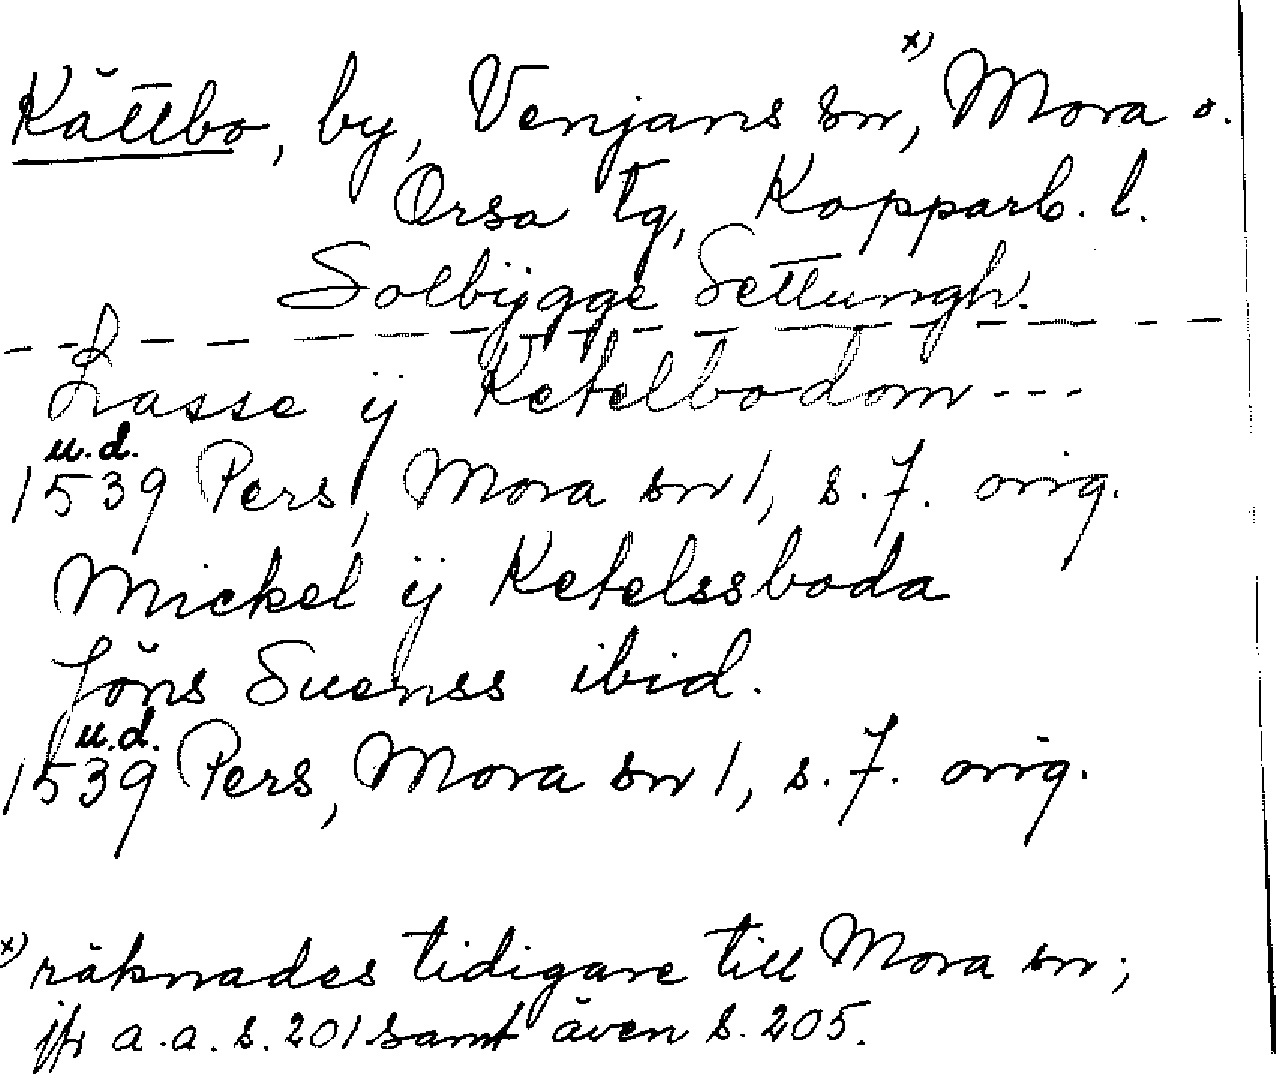 Kättbo, by, Venjans sn,ˣ⁾ Mora o.
Orsa tg, Kopparb. l.
Solbÿgge Settungh.
Lasse ÿ Ketelbodom ---
u.d.
1539 Pers, Mora sn 1, s. 7. orig.
Mickel ÿ Ketelssboda
Jöns Suenss ibid.
u.d.
1539 Pers, Mora sn 1, s. 7. orig.
ˣ⁾ räknades tidigare till Mora sn;
jfr a.a. s. 201 samt även s. 205.